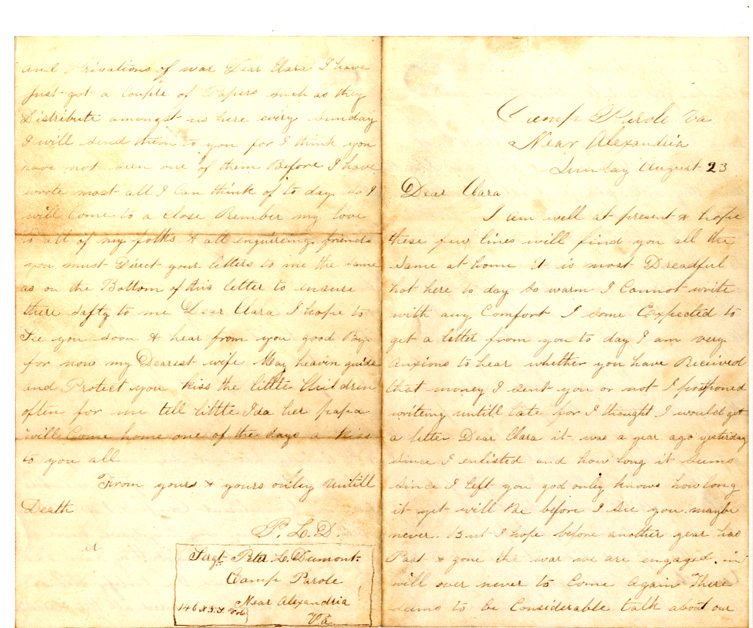 Camp Parole Va
Near Alexandria
Sunday August 23
Dear Clara
I am well at present & hope
these few lines will find you all the
same at home it is most Dreadful
hot here to day so warm I Cannot write
with any Comfort I some Expected to
get a letter from you to day I am very
anxious to hear whether you have Received
that money I sent you or not I postponed
writeing untill late for I thought I would get
a letter Dear Clara it was a year ago yesterday
since I enlisted and how long it seems
since I left you god only knows how long
it yet will be before I see you maybe
never. But I hope before another year has
Past & gone the war we are engaged in
will over never to Come Again There
seems to be Considerable talk about our
and Privations of war Dear Clara I have
just got a Couple of Papers such as they
Distribute amongst us here every sunday
I will send them to you for I think you
have not seen one of them Before I have
wrote most all I can think of to day so I
will Come to a close Rember my love
is all of my folks & all enquireing friends
you must Direct your letters to me the same
as on the Bottom of this letter to ensure
there safty to me Dear Clara I hope to
See you soon & hear from you good By
for now my Dearest wife. May heaven guide
and Protect you kiss the little Children
often for me tell little Ida her papa
will Come home one of the days a kiss
to you all
From yours & yours onley untill
Death
P. L. D.
Sergt Peter L. Dumont
Camp Parole
Near Alexandria
Va